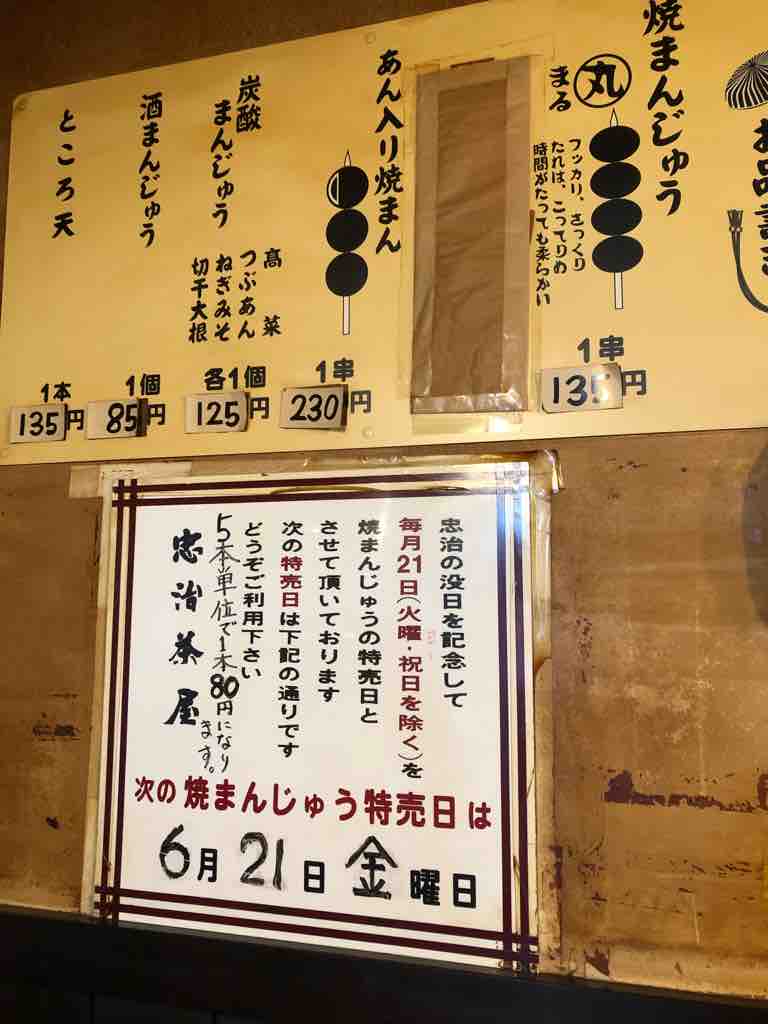 お品書き
焼まんじゅう
丸
まる
フッカリ、さっくり
たれは、こってりの
時間がたっても柔らかい
1串
135円
あん入り焼まん
1串
230円
炭酸
まんじゅう
高菜
つぶあん
ねぎみそ
切干大根
各1個
125円
酒まんじゅう
1個
85円
ところ天
1本
135円
忠治の没日を記念して
毎月21日(火曜・祝日を除く)を
焼まんじゅうの特売日と
させて頂いております
次の特売日は下記の通りです
どうぞご利用下さい
5本単位で1本80円になり
ます。
忠治茶屋
次の焼まんじゅう特売日は
6月21日金曜日